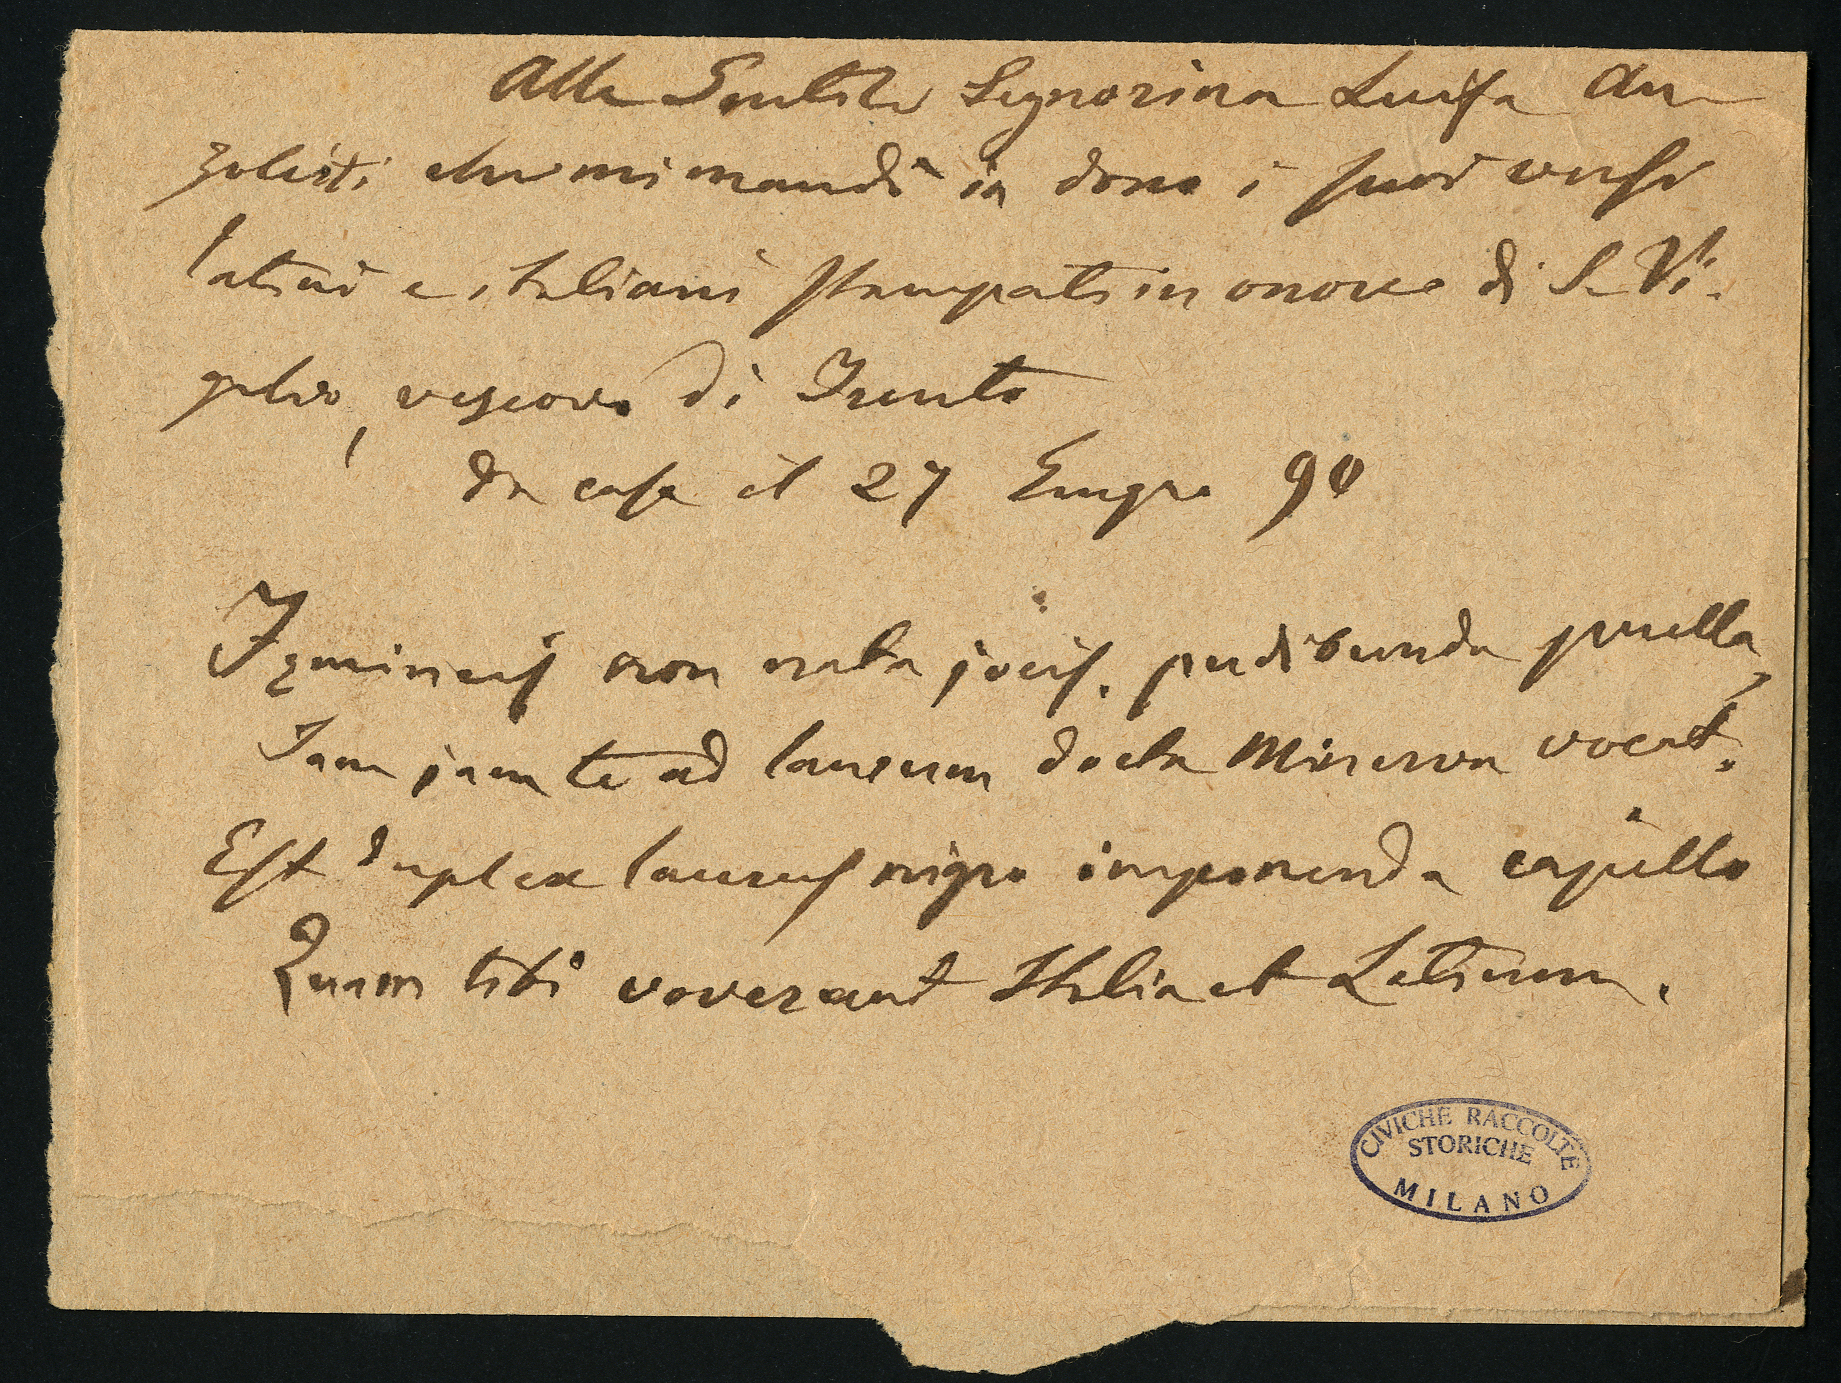 Alla Gentile Signorina Luisa An
zoletti che mi mandò in dono i suoi versi
latini e italiani stampati in onore di S. Vi-
gilio, vescovo di Trento
da casa il 27 Giugno 90
Fęmineis non nata jocis, pudibunda puella,
Iam jam te ad laurum docta Minerva vocat.
Est duplex laurus nigro imponenda capillo
Quam tibi voverant Italia et Latium.
CIVICHE RACCOLTE
STORICHE
MILANO